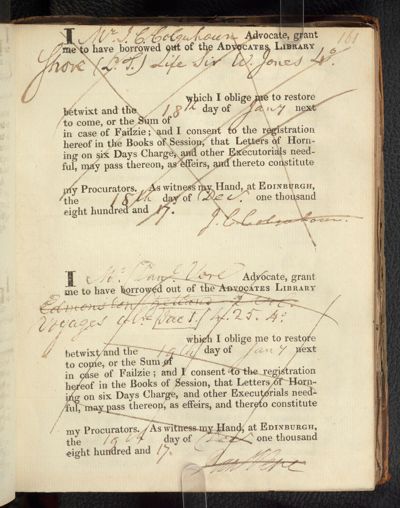 161
I Mr. J. C. Colquhoun Advocate, grant
me to have borrowed out of the ADVOCATES LIBRARY
Shore (L.T.) Life Sir W. Jones 4o.
which I oblige me to restore
betwixt and the 18th day of Jany next
to come, or the Sum of
in case of Failzie; and I consent to the registration
hereof in the Books of Session, that Letters of Horn-
ing on six Days Charge, and other Executorials need-
ful, may pass thereon, as effeirs, and thereto constitute
my Procurators. As witness my Hand, at EDINBURGH,
the 18th day of Dec. one thousand
eight hundred and 17.
J. C. Colquhoun.
I Mr. Danl Vere Advocate, grant
me to have borrowed out of the ADVOCATES LIBRARY
Voyages 4o.
which I oblige me to restore
betwixt and the 19th day of Jany next
to come, or the Sum of
in case of Failzie; and I consent to the registration
hereof in the Books of Session, that Letters of Horn-
ing on six Days Charge, and other Executorials need-
ful, may pass thereon, as effeirs, and thereto constitute
my Procurators. As witness my Hand, at EDINBURGH,
the 19th day of Dec. one thousand
eight hundred and 17.
Dan Vere